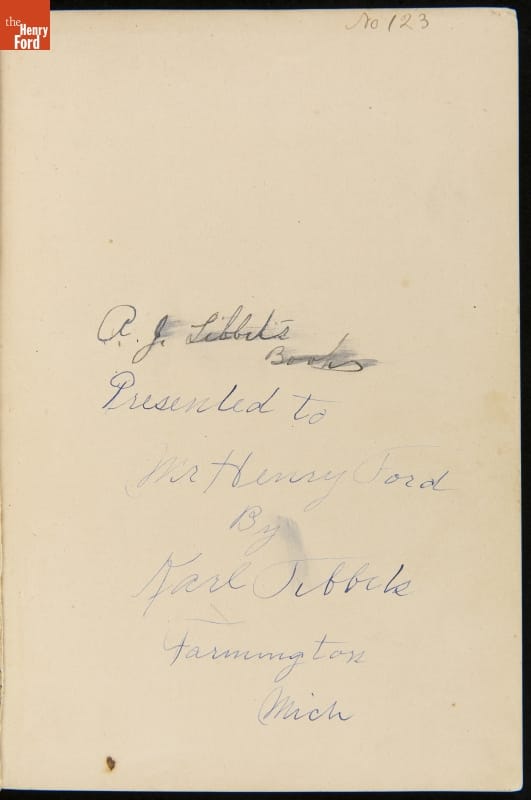 the
Henry
Ford
No 123
A. J. Tibbit's
Books
Presented to
Mr Henry Ford
By
Karl Tibbits
Farmington
Mich